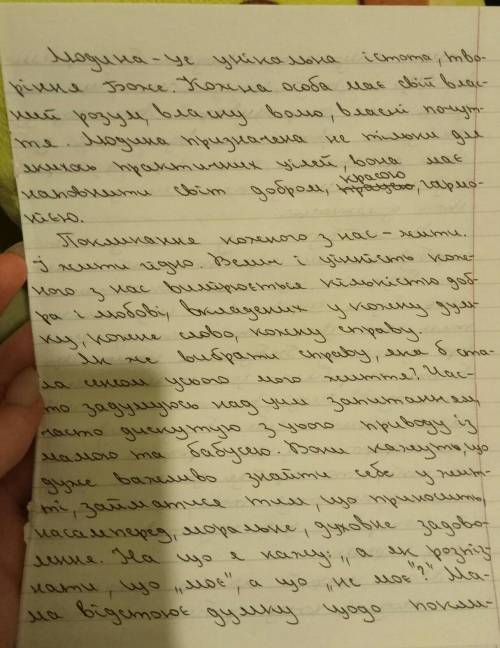 Людина – це унікальна істота, тво-
ріння Боже. Кожна особа має свій влас-
ний розум, власну волю, власні почут-
тя. Людина призначена не тільки для
якихось практичних цілей, вона має
наповнити світ добром, красою, гармо-
нією.
Покликання кожного з нас – жити.
І жити гідно. Велич і цінність кож-
ного з нас вимірюється кількістю доб-
ра і любові, вкладених у кожну дум-
ку, кожне слово, кожну справу.
Як же вибрати справу, яка б ста-
ла сенсом усього мого життя? Час-
то задумуюсь над цим запитанням,
часто дискутую з цього приводу із
мамою та бабусею. Вони кажуть, що
дуже важливо знайти себе у жит-
ті, займатися тим, що приносить,
насамперед, моральне, духовне задово-
лення. На що я кажу: „а як розпіз-
нати, що „моє", а що „не моє"?" Ма-
ма відстоює думку щодо покли-